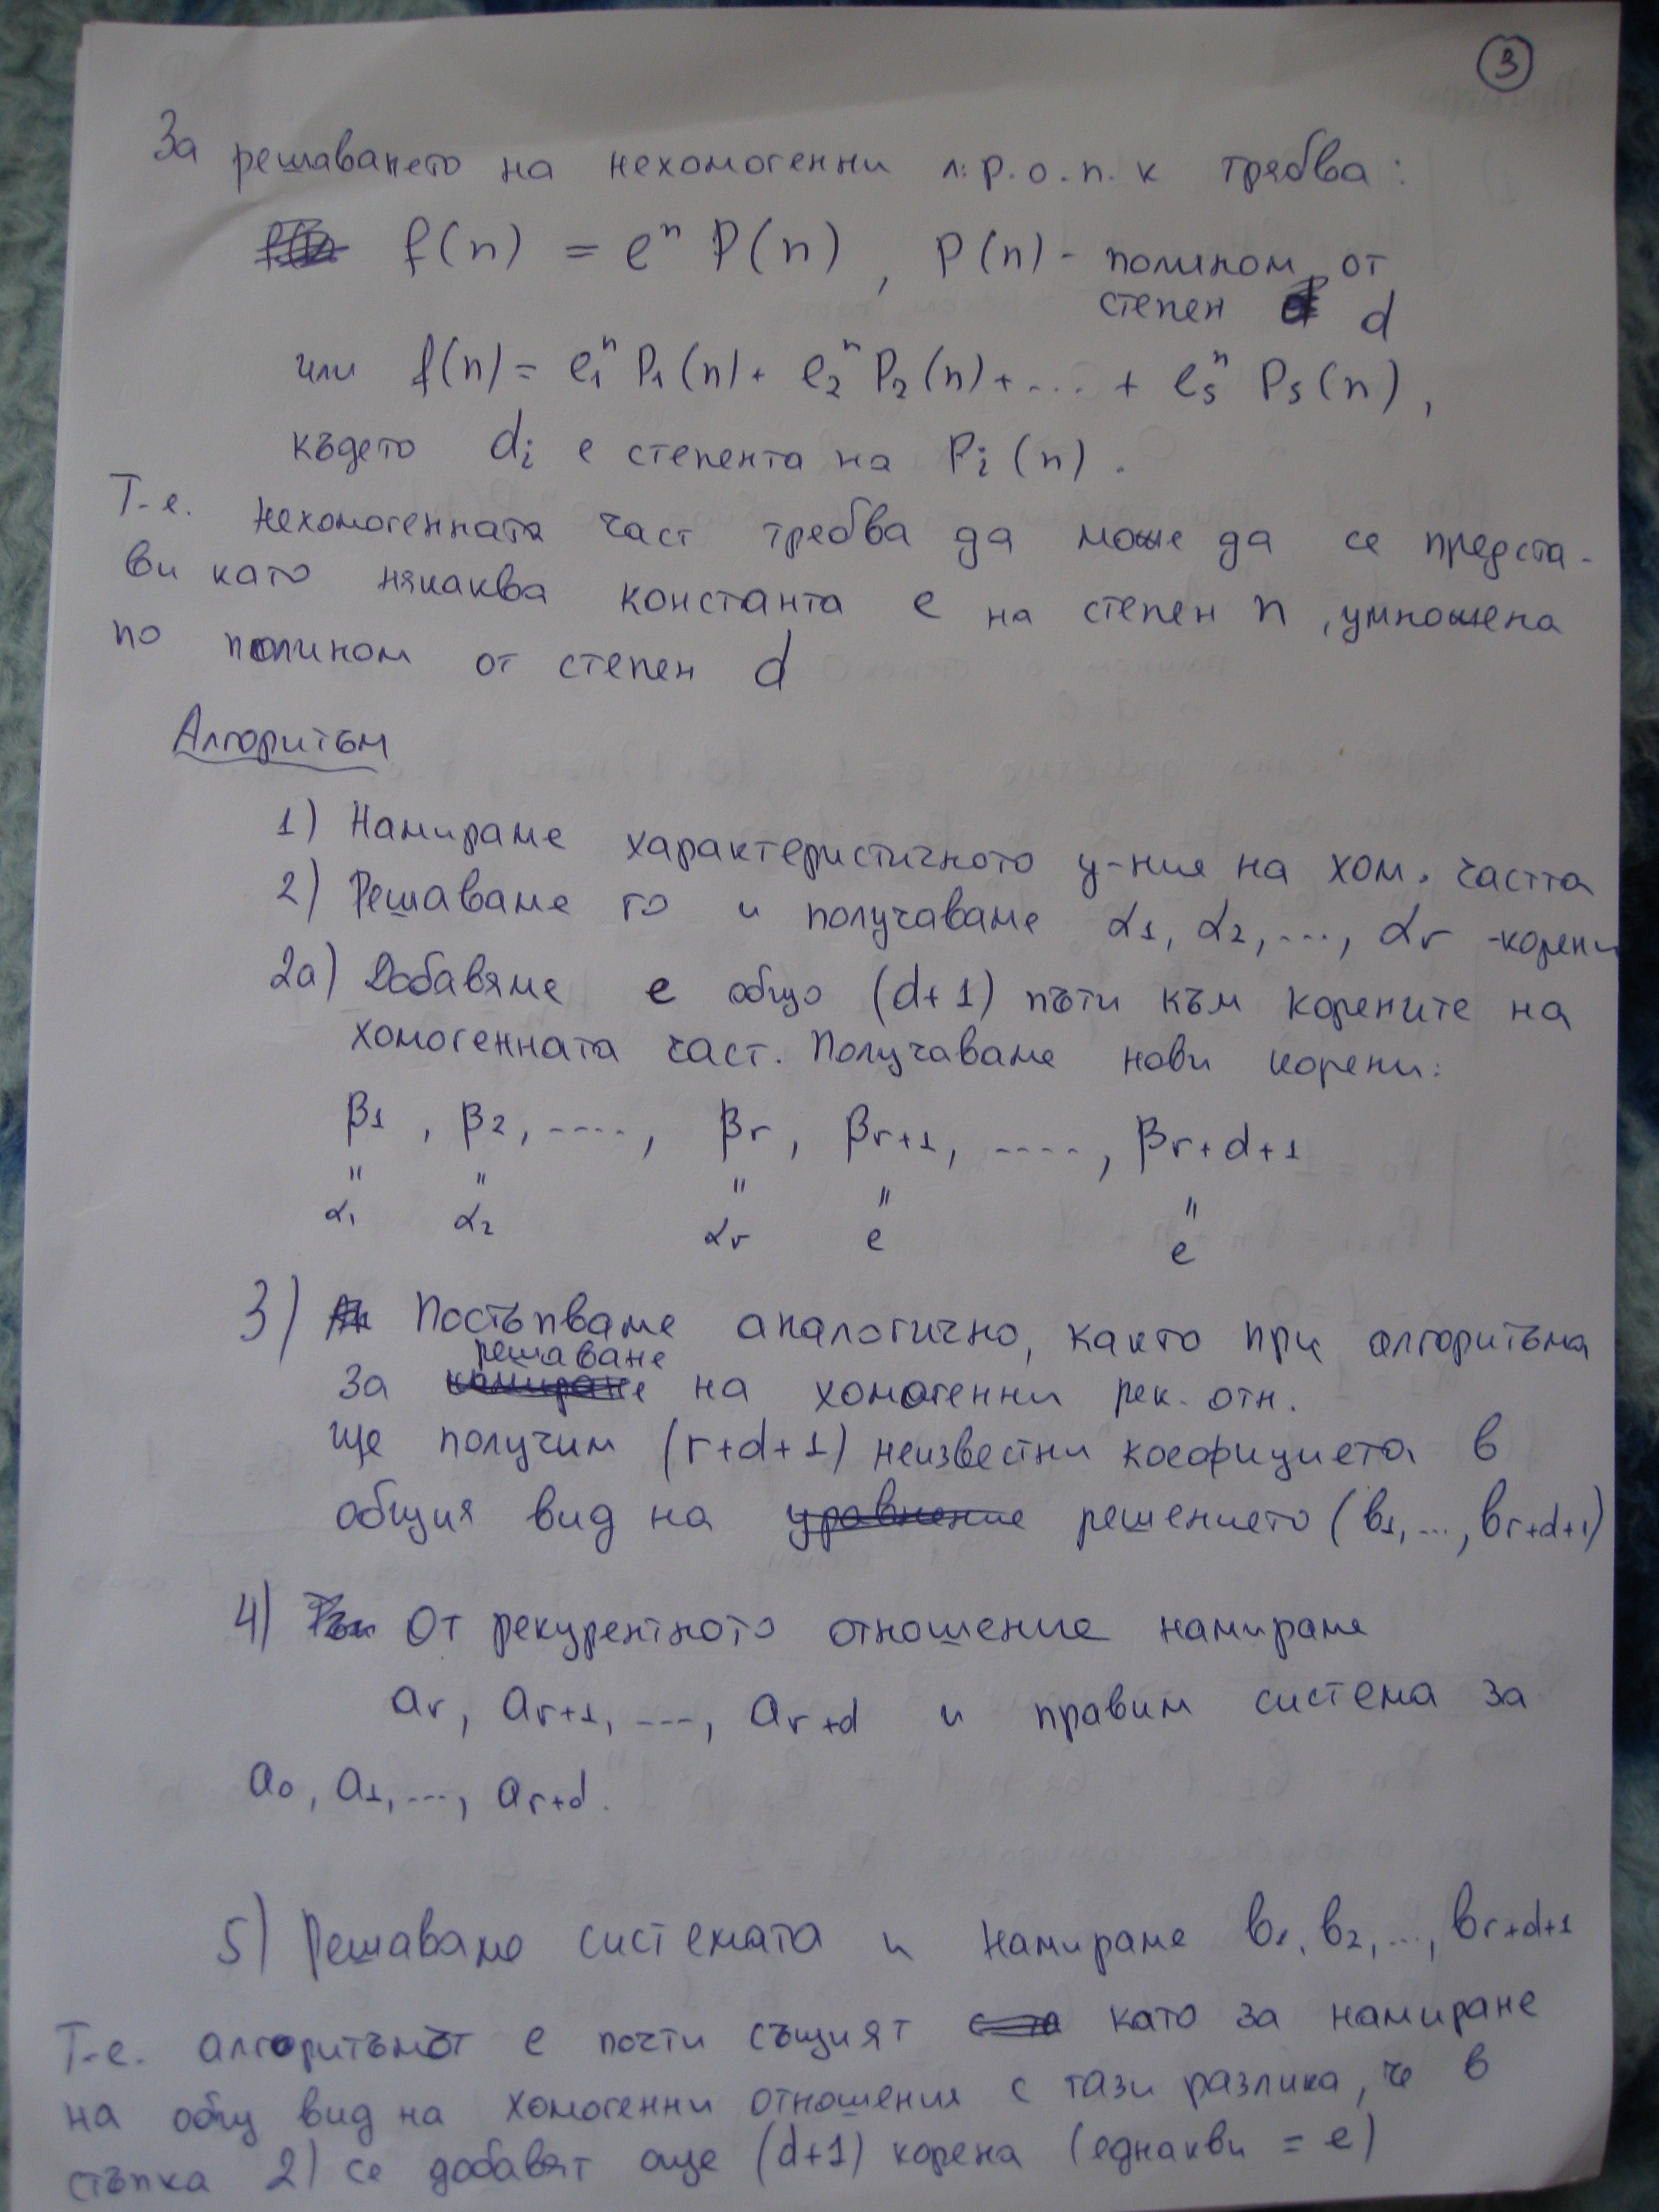 3
За решаването на нехомогенни л.р.о.п.к трябва:
f(n) = eⁿ P(n), P(n) - полином от
степен d
или f(n) = e₁ⁿ P₁(n) + e₂ⁿ P₂(n) + .... + eₛⁿ Pₛ(n),
където dᵢ е степента на Pᵢ(n).
Т.е. нехомогенната част требва да може да се предста-
ви като някаква константа e на степен n, умножена
по полином от степен d
Алгоритъм
1) Намираме характеристичното у-ния на хом. частта
2) Решаваме го и получаваме α₁, α₂, ..., αᵣ - корени
2а) Добавяме e общо (d+1) пъти към корените на
хомогенната част. Получаваме нови корени:
β₁, β₂, ...., βᵣ, βᵣ₊₁, ...., βᵣ₊d₊₁
" " " " "
α₁ α₂ αᵣ e e
3) Постъпваме аналогично, както при алгоритъма
за решаване на хомогенни рек. отн.
Ще получим (r+d+1) неизвестни коефициета в
общия вид на решението (b₁, ..., bᵣ₊d₊₁)
4) От рекурентното отношение намираме
aᵣ, aᵣ₊₁, ..., aᵣ₊d и правим система за
a₀, a₁, ..., aᵣ₊d.
5) Решаваме системата и намираме b₁, b₂, ..., bᵣ₊d₊₁
Т.е. алгоритъмът е почти същият като за намиране
на общ вид на хомогенни отношения с тази разлика, че в
стъпка 2) се добавят още (d+1) корена (еднакви = e)